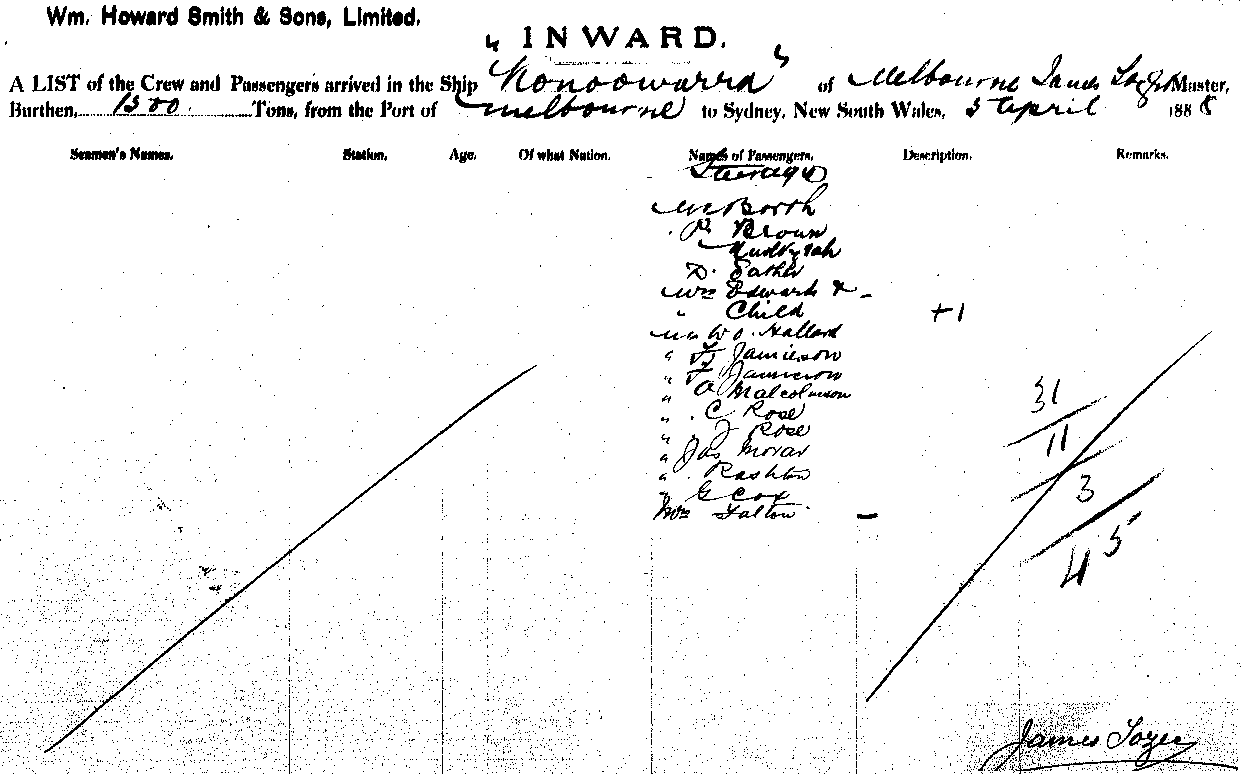 Wm. Howard Smith & Sons, Limited.
" INWARD.
A LIST of the Crew and Passengers arrived in the Ship "Konoowarra" of Melbourne James Tozer Master,
Burthen, 1300 Tons, from the Port of Melbourne to Sydney, New South Wales, 5 April 1888
Seamen's Names. Station. Age. Of what Nation. Names of Passengers. Description. Remarks.
Steerage
Mr Booth
" Brown
D. Eather
Mrs Edwards & -
" Child +1
Mr W J. Hallard
" Jamieson
" Jamieson
" Malcolmson
31
" C Rose
" J Rose
11
" Jas Moran
" Rashton
3
" G Cox
Mrs Talton -
45
James Tozer